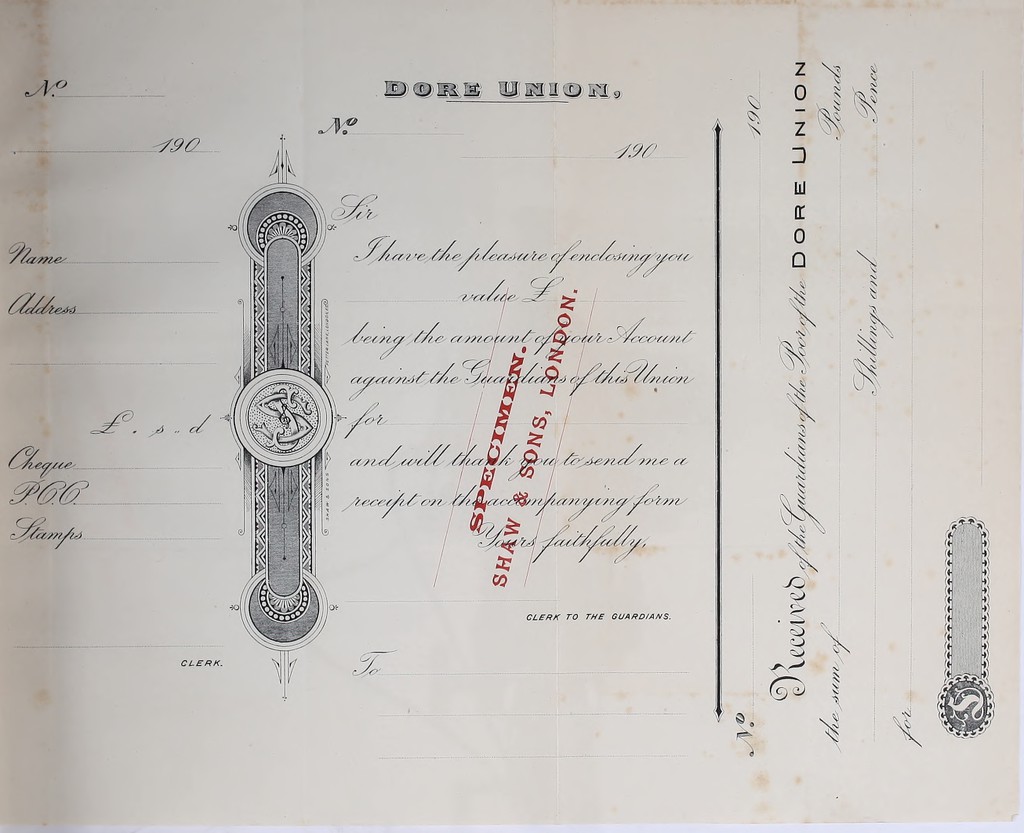 No.
190
Name
Address
£ . s .. d
Cheque
P.C.C.
Stamps
CLERK.
SHAW & SONS
DORE UNION,
No.
190
Sir
I have the pleasure of enclosing you
value £
being the amount of your Account
against the Guardians of this Union
for
and will thank you to send me a
receipt on the accompanying form
Yours faithfully,
CLERK TO THE GUARDIANS.
To
SPECIMEN.
SHAW & SONS, LONDON.
No.
190
Received of the Guardians of the Poor of the DORE UNION
the sum of
Pounds
Shillings and
Pence
for